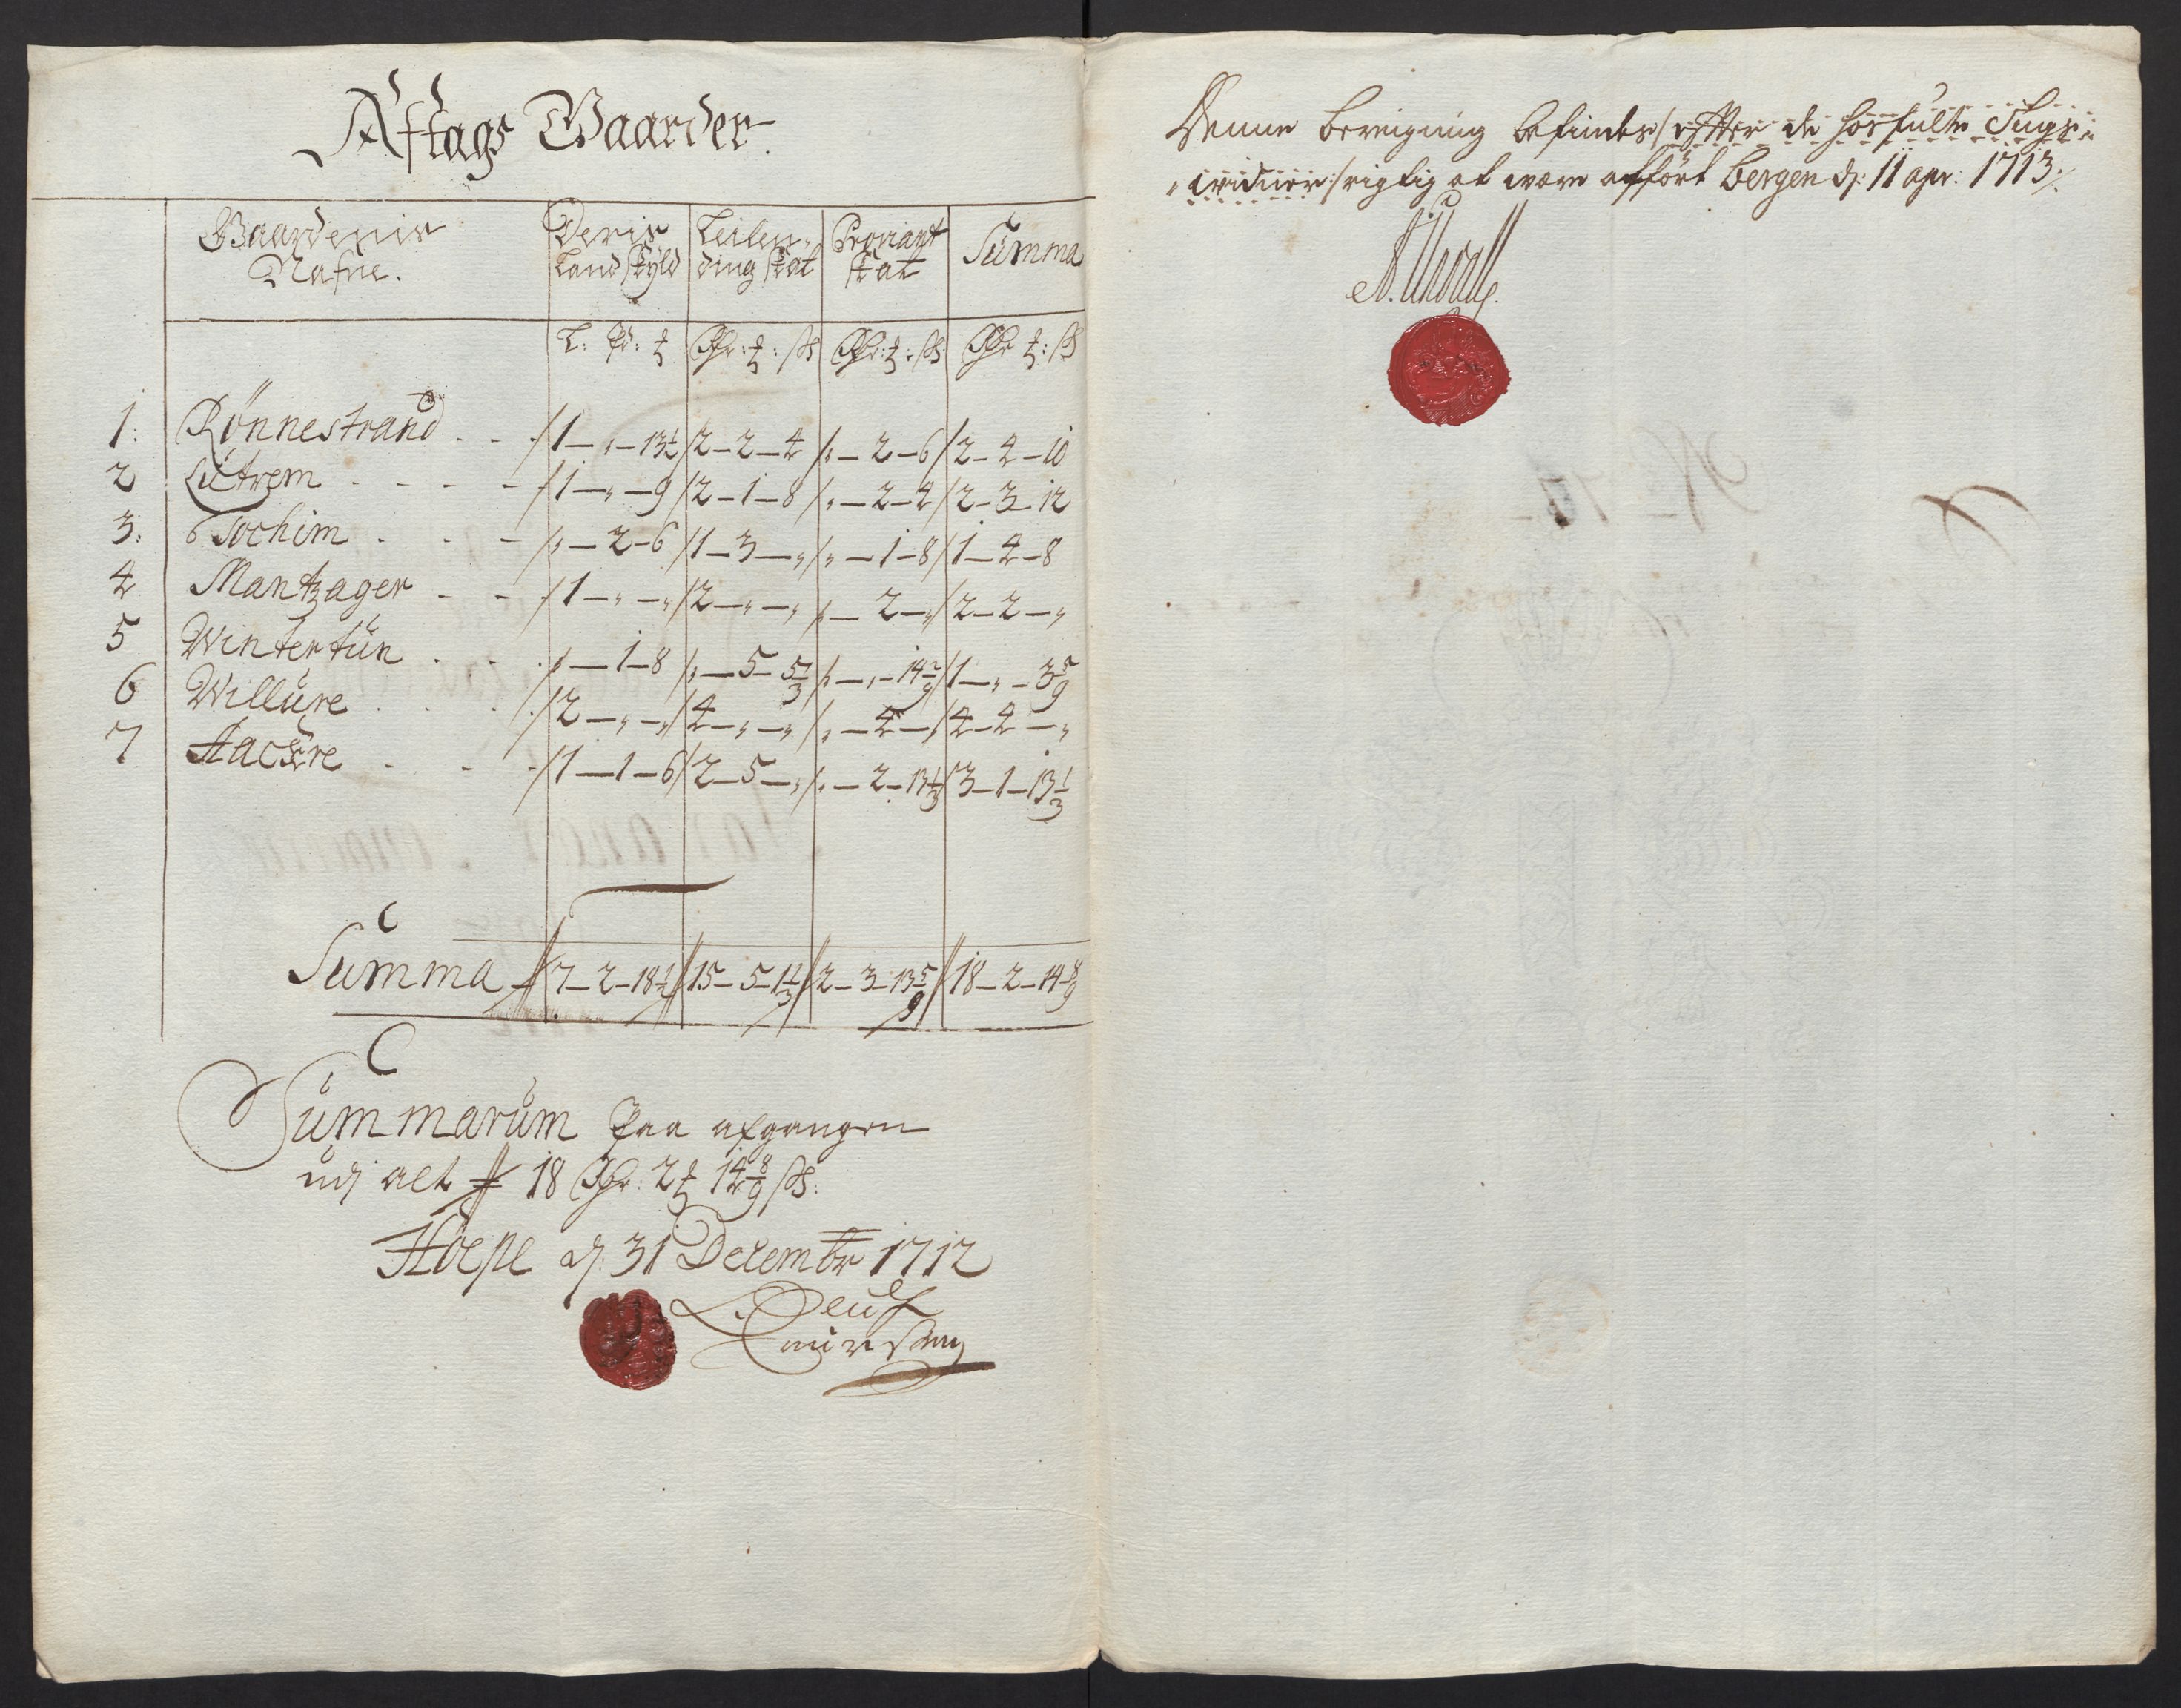 Aftags Gaarder.
Gaardenis Nafne. | Deris Land Skyld | Leilending skat | Proviant skat | Summa
L: Pd: ℔ | Rdr: ℔: ß | Rdr: ℔: ß | Rdr ℔: ß
1: Rönnestrand - - - 1 – „ – 13½ | 2 – 2 – 4 | „ – 2 – 6 | 2 – 4 – 10
2 Lütrem - - - - 1 – „ – 9 | 2 – 1 – 8 | „ – 2 – 4 | 2 – 3 – 12
3: - - - „ – 2 – 6 | 1 – 3 – „ | „ – 1 – 8 | 1 – 4 – 8
4 Mantzager - - - 1 – „ – „ | 2 – „ – „ | „ – 2 – „ | 2 – 2 – „
5 Wintertün - - - „ – 1 – 8 | „ – 5 – 5⅓ | „ – „ – 14 2/9 | 1 – „ – 3 5/9
6 Willüre - - - 2 – „ – „ | 4 – „ – „ | „ – 4 – „ | 4 – 4 – „
7 - - - 1 – 1 – 6 | 2 – 5 – „ | „ – 2 – 13⅓ | 3 – 1 – 13⅓
Summa 7 – 2 – 18½ | 15 – 5 – 1⅓ | 2 – 3 – 13 5/9 | 18 – 2 – 14 8/9
Summarum Paa afgangen
udj alt 18 Rdr: 2 ℔ 14 8/9 ß:
Höepe dj: 31 Decembr 1712
Denne beregning befindes /: efter de hosfulte
rigtig at være afført Bergen dj: 11 apr: 1713:/